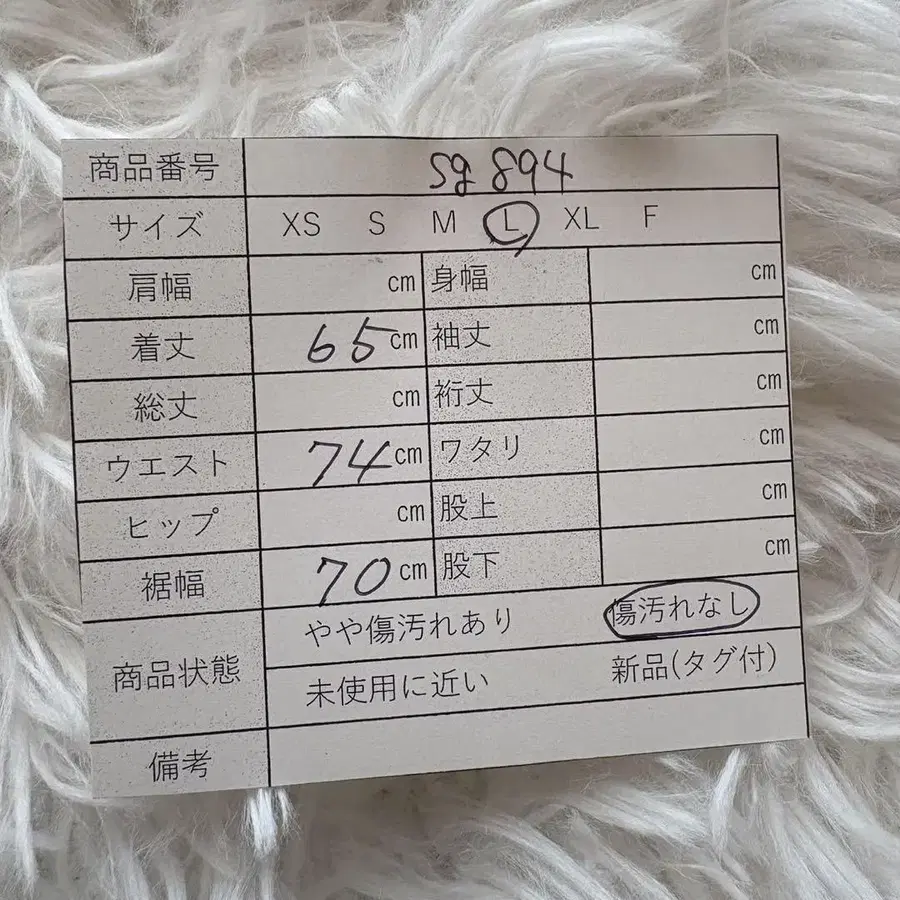 商品番号 sg 894
サイズ XS S M L XL F
肩幅 cm 身幅 cm
着丈 65 cm 袖丈 cm
総丈 cm 裄丈 cm
ウエスト 74 cm ワタリ cm
ヒップ cm 股上 cm
裾幅 70 cm 股下 cm
商品状態 やや傷汚れあり 傷汚れなし
未使用に近い 新品(タグ付)
備考